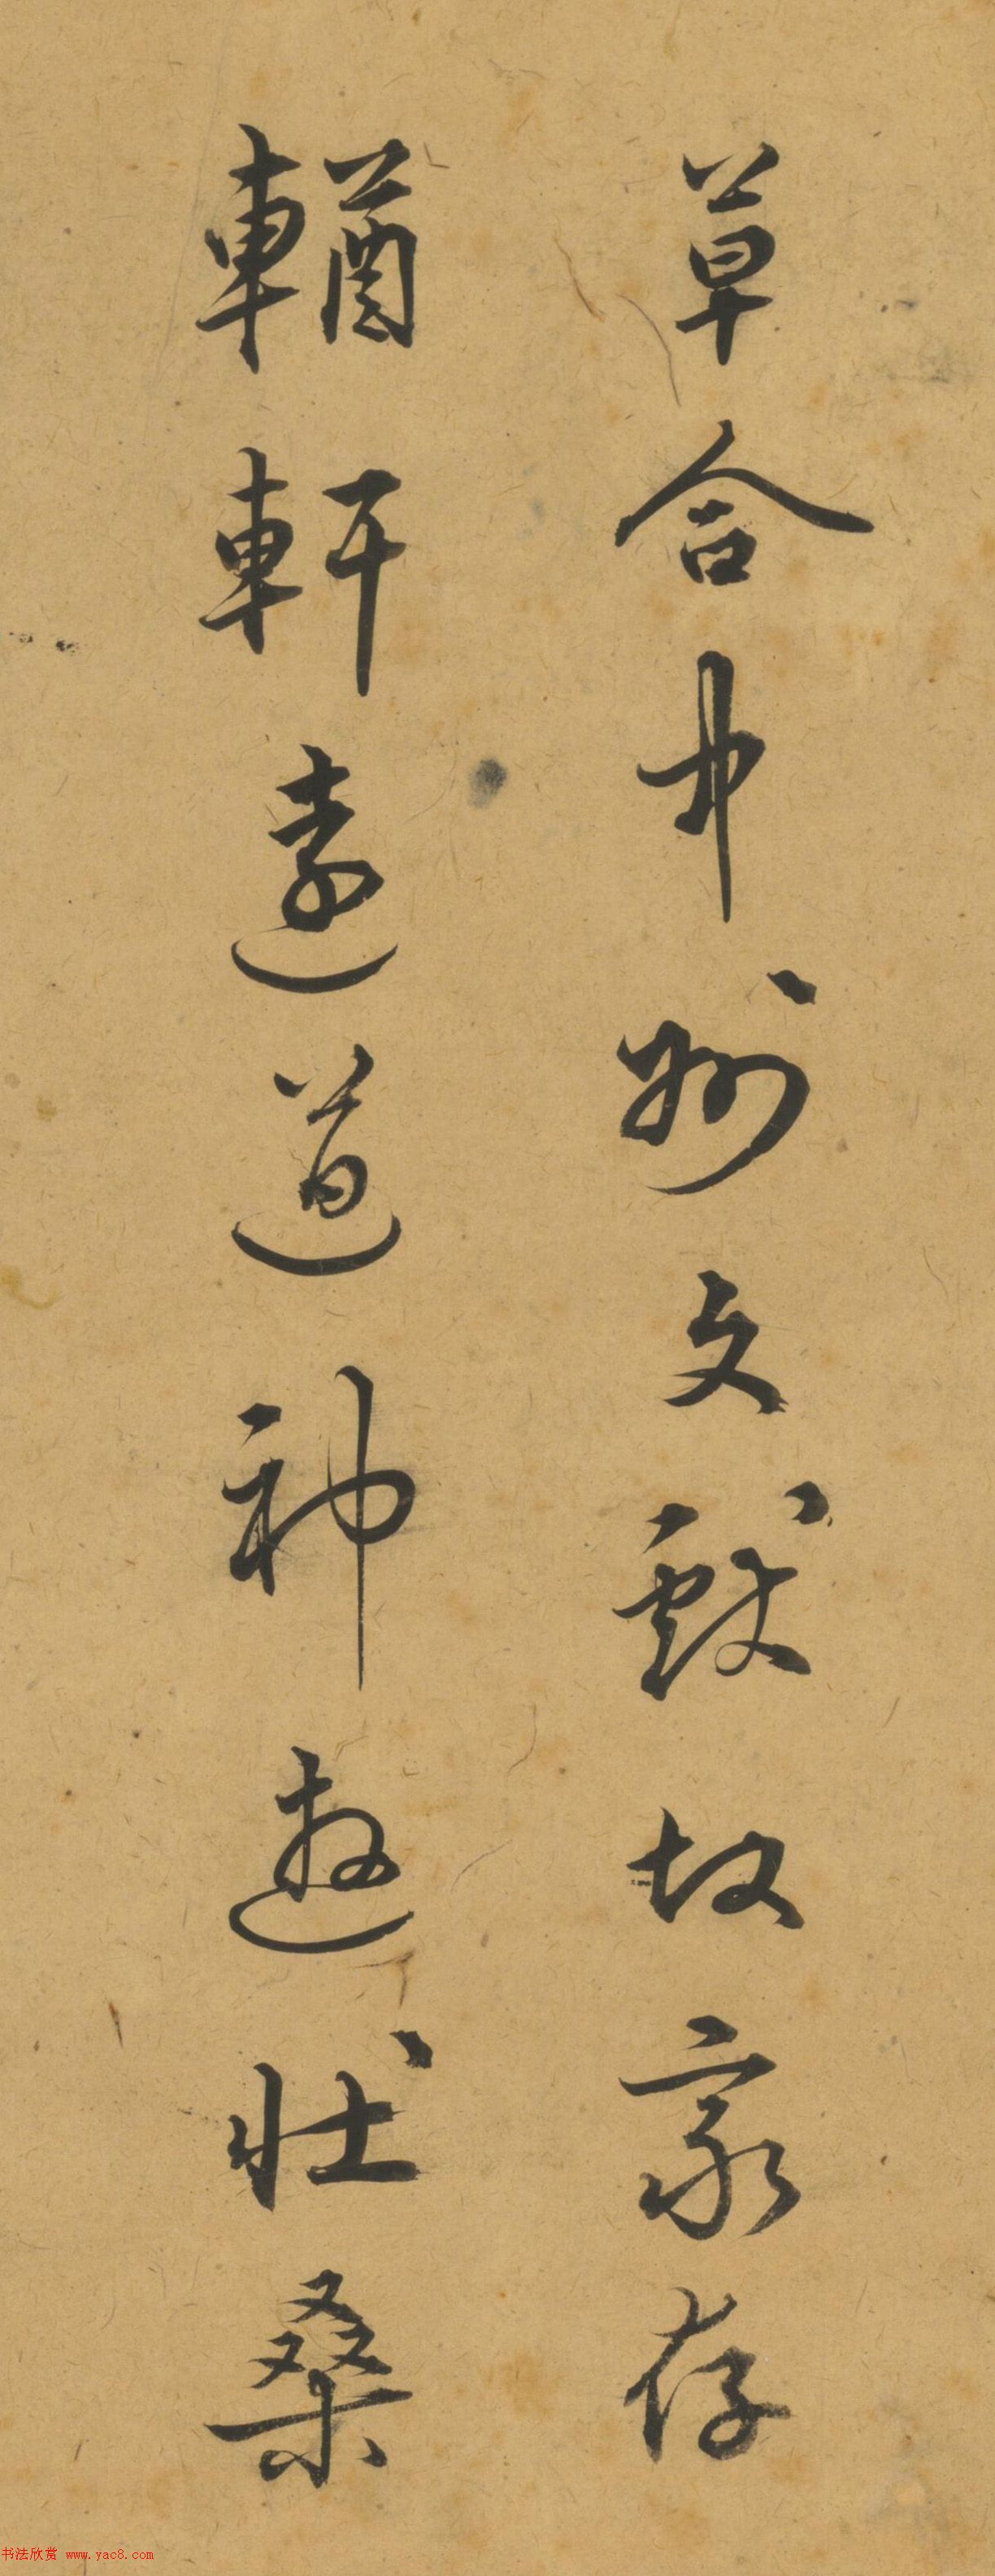 草合中州文獻故家存
輶軒遠道神遊壯桑
书法欣赏 www.yac8.com